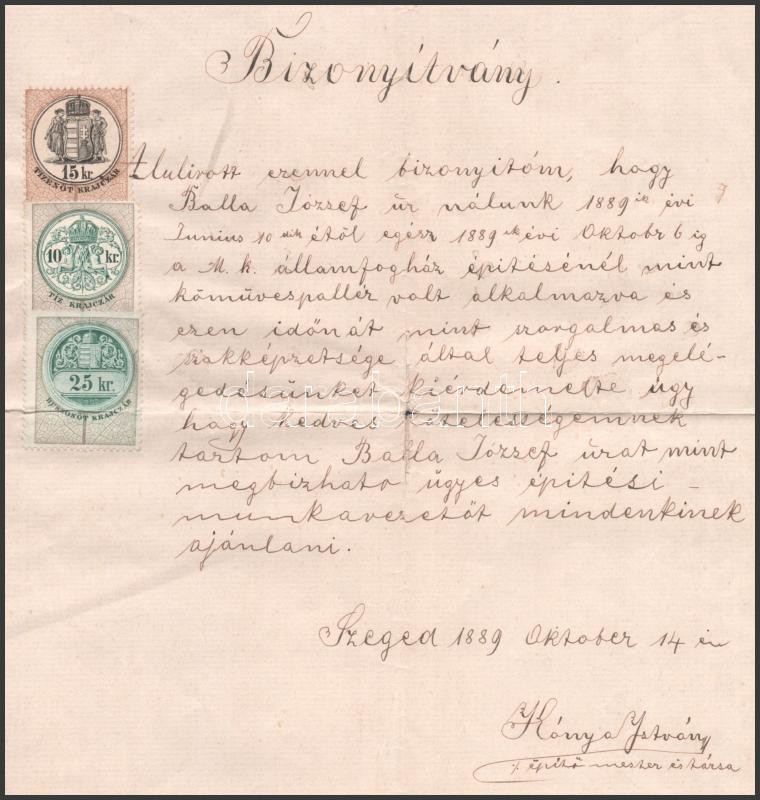 Bizonyítvány.
15 kr.
TIZENÖT KRAJCZÁR
Alulirott ezennel bizonyitóm, hogy
Balla József úr nálunk 1889 ik évi
Junius 10 étől egész 1889 ik évi Oktobr 6 ig
10 kr.
TIZ KRAJCZÁR
a M. k. államfogház épitésénél mint
kőmüvespallér volt alkalmazva és
ezen időn át mint szorgalmas és
szakképzetsége által teljes megelé-
25 kr.
HUSZONÖT KRAJCZÁR
gedésünket kiérdemelte úgy
hogy kedves kötelességemnek
tartom Balla József urat mint
megbizhato ügyes épitési-
munkavezetőt mindenkinek
ajánlani.
darabanth
Szeged 1889 Oktober 14 én
Kónya Istvány
épitő mester és társa